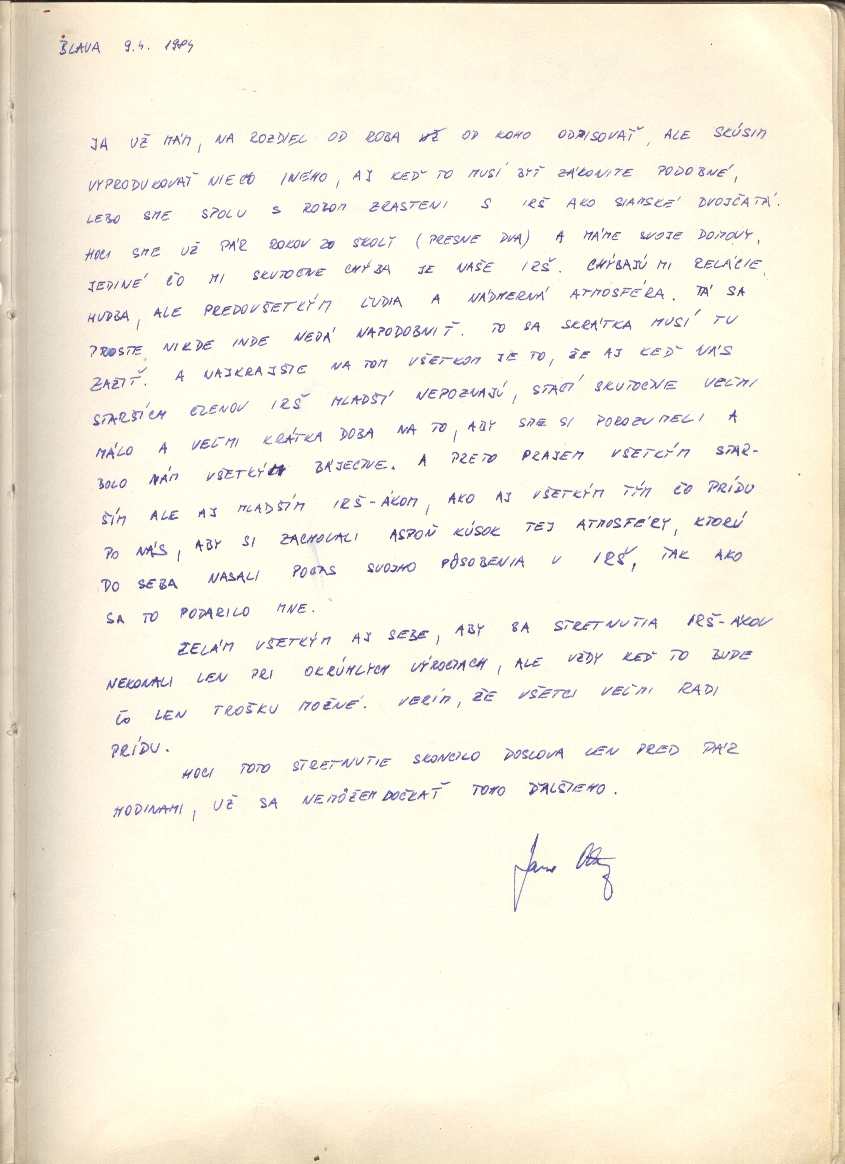 BLAVA 9.4. 1984
JA UŽ MÁM, NA ROZDIEL OD ROBA OD KOHO ODPISOVAŤ, ALE SKÚSIM
VYPRODUKOVAŤ NIEČO INÉHO, AJ KEĎ TO MUSÍ BYŤ ZÁKONITE PODOBNÉ,
LEBO SME SPOLU S ROBOM ZRASTENI S IRŠ AKO SIAMSKÉ DVOJČATÁ.
HOCI SME UŽ PÁR ROKOV ZO ŠKOLY (PRESNE DVA) A MÁME SVOJE DOMOVY,
JEDINÉ ČO MI SKUTOČNE CHÝBA JE NAŠE IRŠ. CHÝBAJÚ MI RELÁCIE,
HUDBA, ALE PREDOVŠETKÝM ĽUDIA A NÁDHERNÁ ATMOSFÉRA. TÁ SA
PROSTE NIKDE INDE NEDÁ NAPODOBNIŤ. TO SA SKRÁTKA MUSÍ TU
ZAŽIŤ. A NAJKRAJŠIE NA TOM VŠETKOM JE TO, ŽE AJ KEĎ NÁS
STARŠÍCH ČLENOV IRŠ MLADŠÍ NEPOZNAJÚ, STAČÍ SKUTOČNE VEĽMI
MÁLO A VEĽMI KRÁTKA DOBA NA TO, ABY SME SI POROZUMELI A
BOLO NÁM VŠETKÝM BÁJEČNE. A PRETO PRAJEM VŠETKÝM STAR-
ŠÍM ALE AJ MLADŠÍM IRŠ-ÁKOM, AKO AJ VŠETKÝM TÝM ČO PRÍDU
PO NÁS, ABY SI ZACHOVALI ASPOŇ KÚSOK TEJ ATMOSFÉRY, KTORÚ
DO SEBA NASALI POČAS SVOJHO PÔSOBENIA V IRŠ, TAK AKO
SA TO PODARILO MNE.
ŽELÁM VŠETKÝM AJ SEBE, ABY SA STRETNUTIA IRŠ-ÁKOV
NEKONALI LEN PRI OKRÚHLYCH VÝROČIACH, ALE VŽDY KEĎ TO BUDE
ČO LEN TROŠKU MOŽNÉ. VERÍM, ŽE VŠETCI VEĽMI RADI
PRÍDU.
HOCI TOTO STRETNUTIE SKONČILO DOSLOVA LEN PRED PÁR
HODINAMI, UŽ SA NEMÔŽEM DOČKAŤ TOHO ĎALŠIEHO.